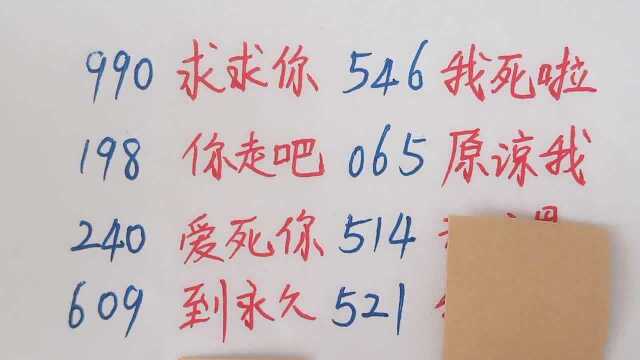 990 求求你 546 我死啦
198 你走吧 065 原谅我
240 爱死你 514
609 到永久 521